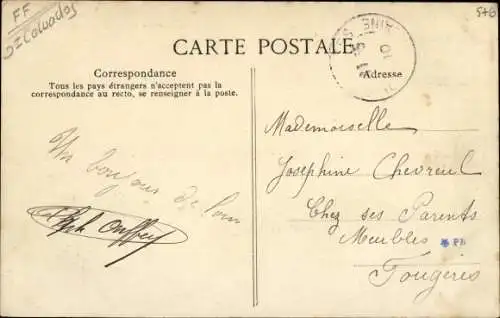 FF
Calvados
576
CARTE POSTALE
Correspondance
Tous les pays étrangers n'acceptent pas la
correspondance au recto, se renseigner à la poste.
Adresse
Un bonjour de loin
Mademoiselle
Joséphine Chevreul
Chez ses Parents
Meubles
PB
Fougères